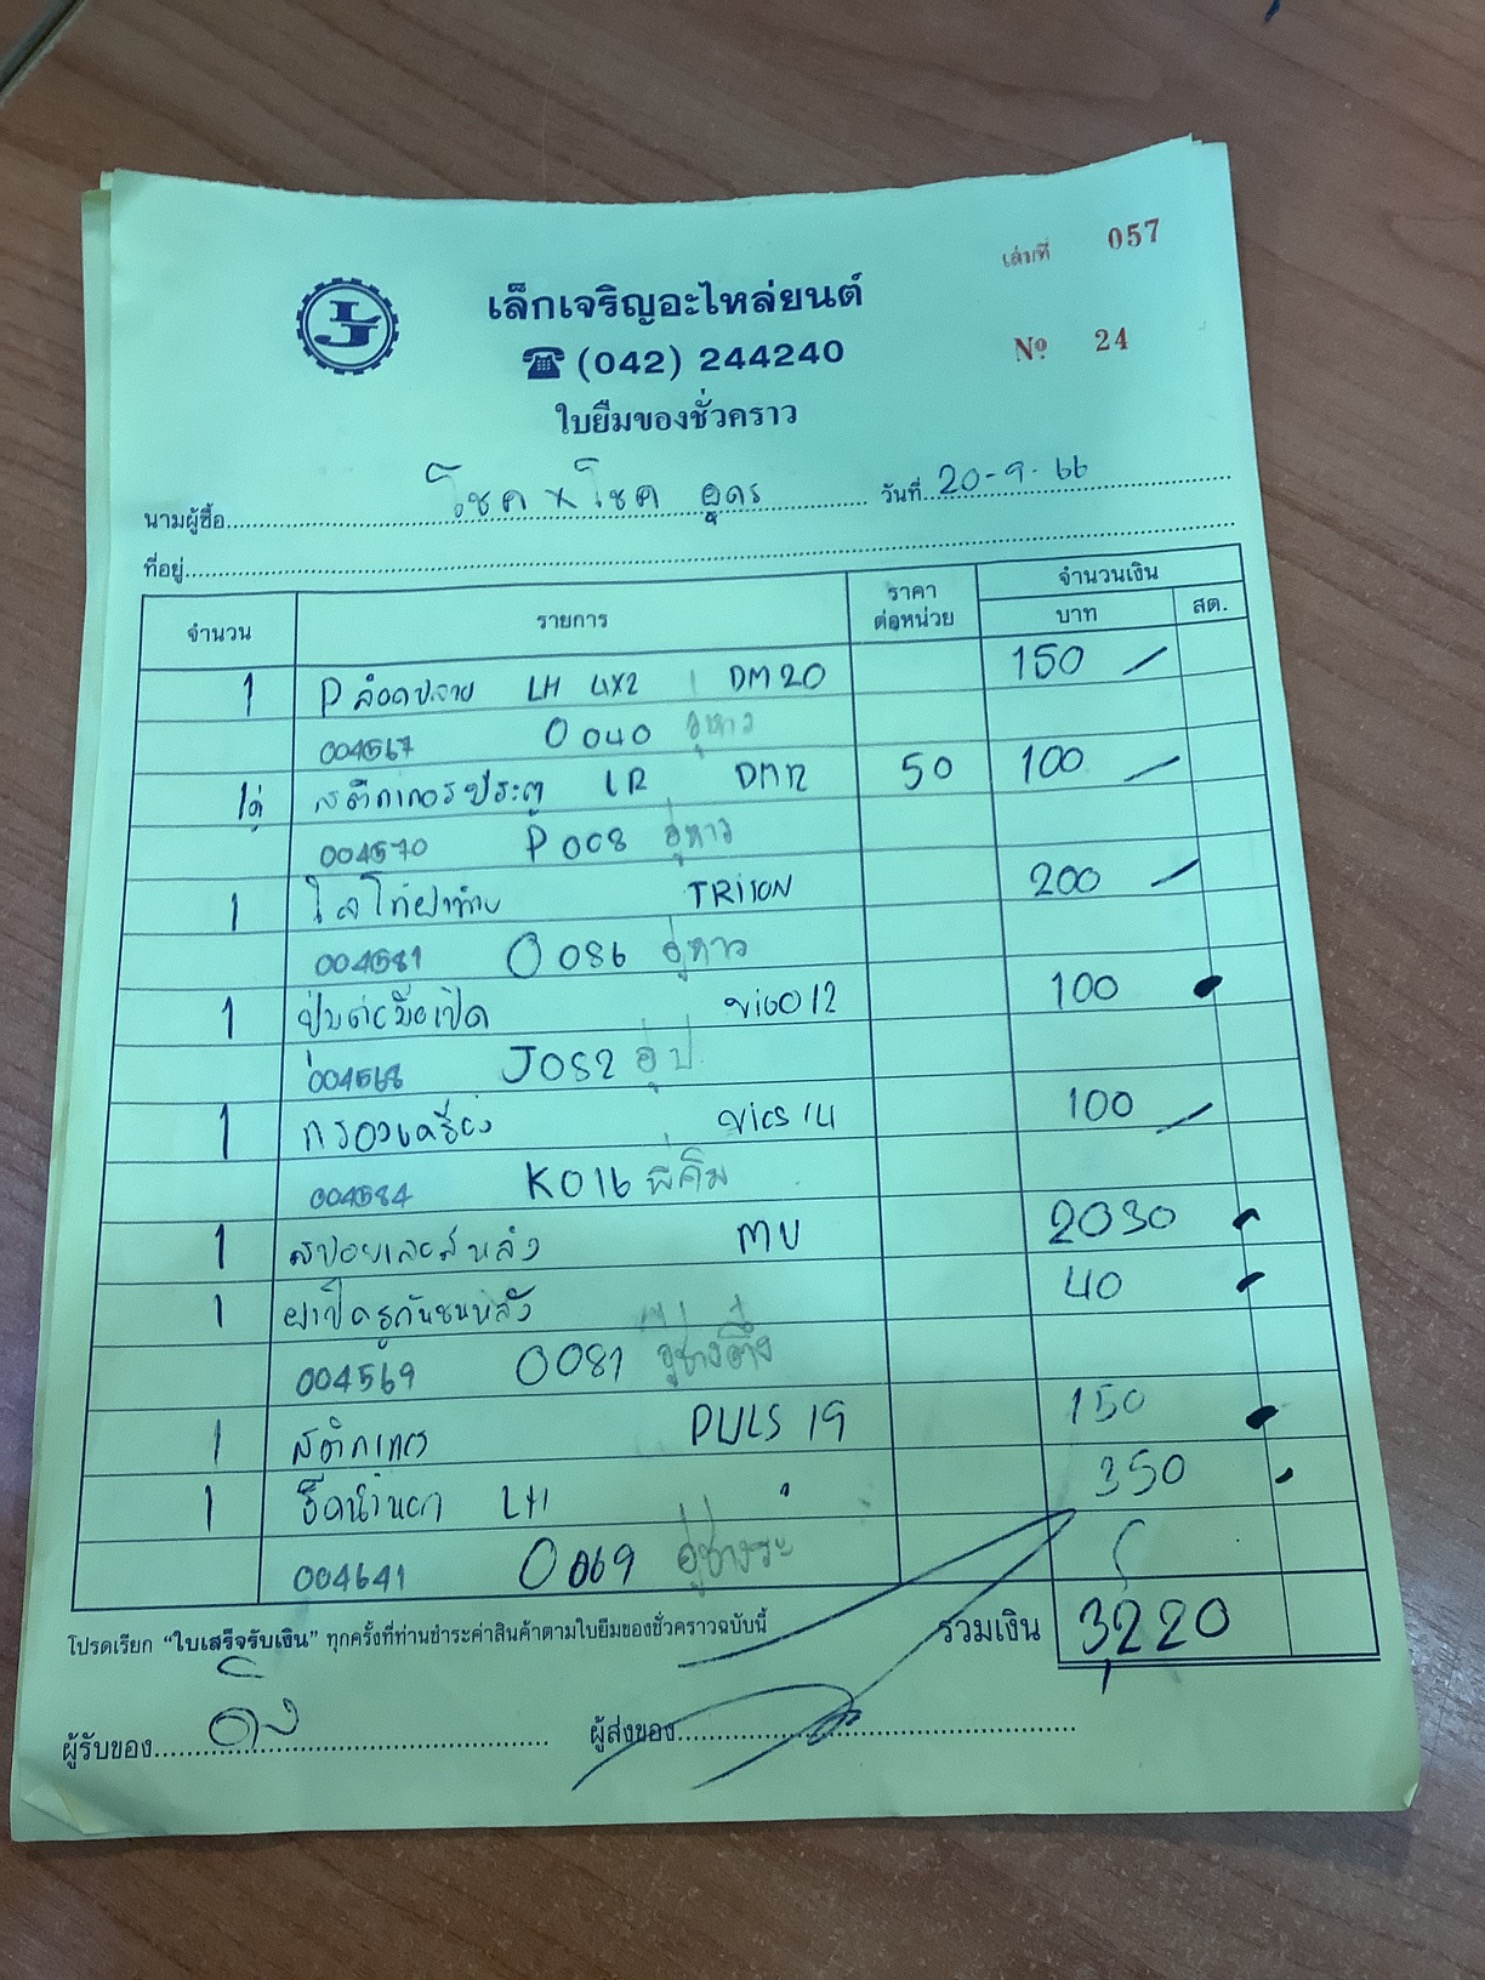 เล่มที่ 057
เล็กเจริญอะไหล่ยนต์
(042) 244240
Nº 24
ใบยืมของชั่วคราว
นามผู้ซื้อ โชค x โชค อุดร วันที่ 20-9-66
ที่อยู่
จำนวน รายการ ราคาต่อหน่วย จำนวนเงิน
บาท สต.
1 LH 4X2 DM20 150
004567 0040 อู่หาว
1คู่ สติกเกอร์ประตู LR DM12 50 100
004570 P008 อู่หาว
1 TRITON 200
004581 0086 อู่หาว
1 vigo12 100
004568 J082 อู่ป
1 กรองเครื่อง vios 14 100
004584 K016 พี่คิม
1 สปอยเลอร์หลัง MU 2030
1 ฝาปิดรูกันชนหลัง 40
004569 0081
1 สติกเกอร์ PULS 19 150
1 LH 350
004641 0069
โปรดเรียก “ใบเสร็จรับเงิน” ทุกครั้งที่ท่านชำระค่าสินค้าตามใบยืมของชั่วคราวฉบับนี้ รวมเงิน 3,220
ผู้รับของ ผู้ส่งของ